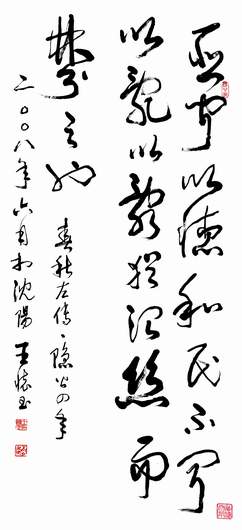 臣闻以德和民不闻
以乱以乱犹治丝而
棼之也
春秋左传·隐公四年
二〇〇八年六月于沈陽王懷玉